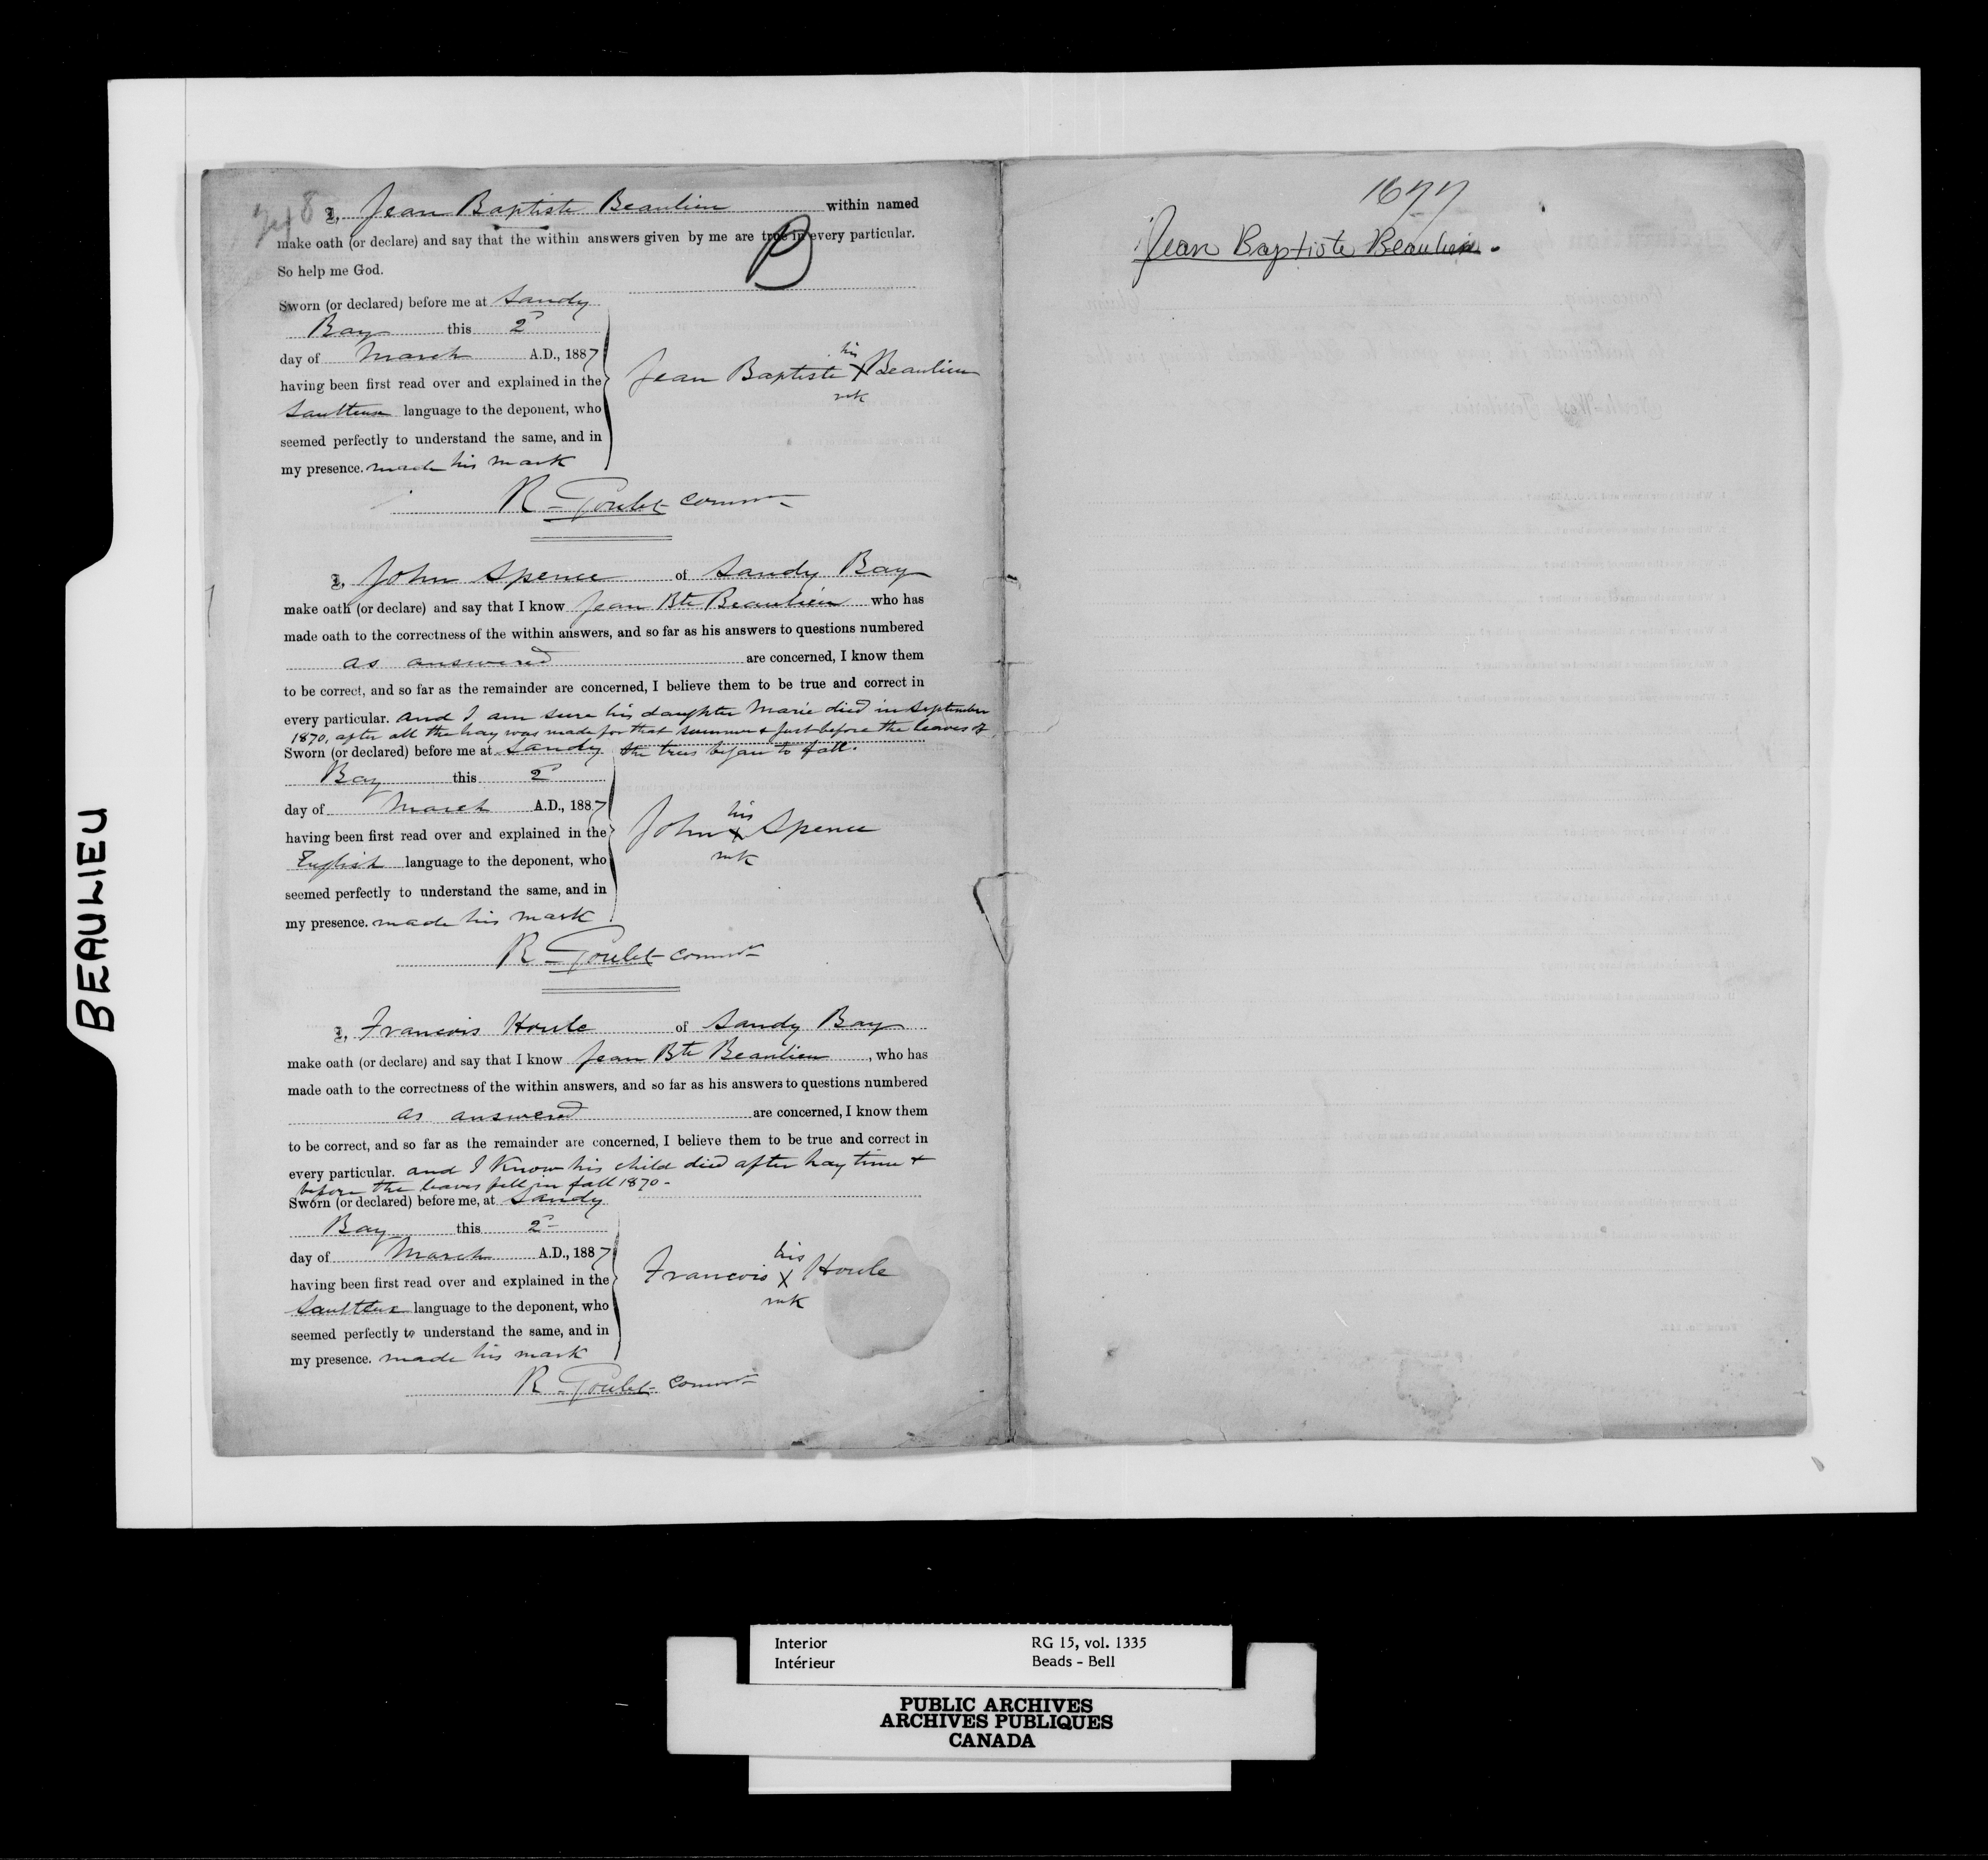 I, Jean Baptiste Beaulieu within named
make oath (or declare) and say that the within answers given by me are true in every particular.
B
So help me God.
Sworn (or declared) before me at Sandy
Bay this 2
day of March A.D., 1887
having been first read over and explained in the
Saulteux language to the deponent, who
seemed perfectly to understand the same, and in
my presence. made his mark
his
Jean Baptiste X Beaulieu
mk
R. Goulet Commr
I, John Spence of Sandy Bay
make oath (or declare) and say that I know Jean Bte Beaulieu who has
made oath to the correctness of the within answers, and so far as his answers to questions numbered
as answered are concerned, I know them
to be correct, and so far as the remainder are concerned, I believe them to be true and correct in
every particular. and I am sure his daughter Marie died in September
1870, after all the hay was made for that summer & just before the leaves of
the trees began to fall.
Sworn (or declared) before me at Sandy
Bay this 2
day of March A.D., 1887
having been first read over and explained in the
English language to the deponent, who
seemed perfectly to understand the same, and in
my presence. made his mark
his
John X Spence
mk
R. Goulet Commr
I, Francois Houle of Sandy Bay
make oath (or declare) and say that I know Jean Bte Beaulieu, who has
made oath to the correctness of the within answers, and so far as his answers to questions numbered
as answered are concerned, I know them
to be correct, and so far as the remainder are concerned, I believe them to be true and correct in
every particular. and I know his child died after hay time &
before the leaves fell in fall 1870 -
Sworn (or declared) before me, at Sandy
Bay this 2
day of March A.D., 1887
having been first read over and explained in the
Saulteux language to the deponent, who
seemed perfectly to understand the same, and in
my presence. made his mark
his
Francois X Houle
mk
R. Goulet Commr
1677
Jean Baptiste Beaulieu.
BEAULIEU
Interior RG 15, vol. 1335
Intérieur Beads - Bell
PUBLIC ARCHIVES
ARCHIVES PUBLIQUES
CANADA